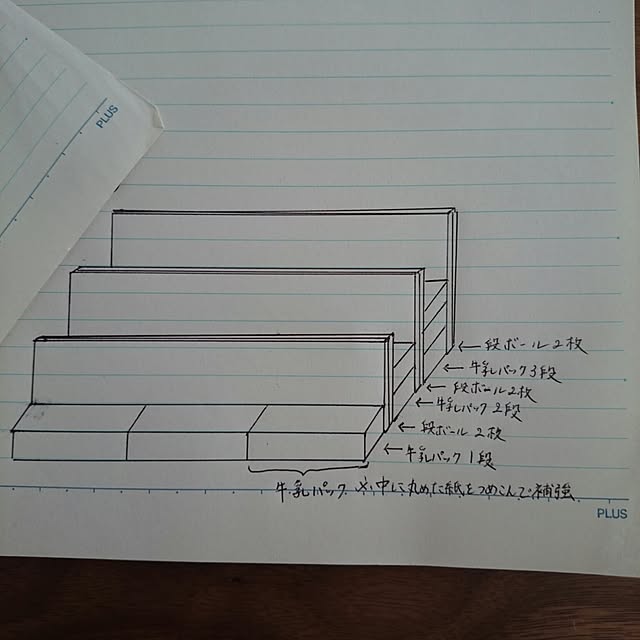 PLUS
←段ボール2枚
←牛乳パック3段
←段ボール2枚
←牛乳パック2段
←段ボール2枚
←牛乳パック1段
牛乳パック ※中に丸めた紙をつめこんで補強
PLUS